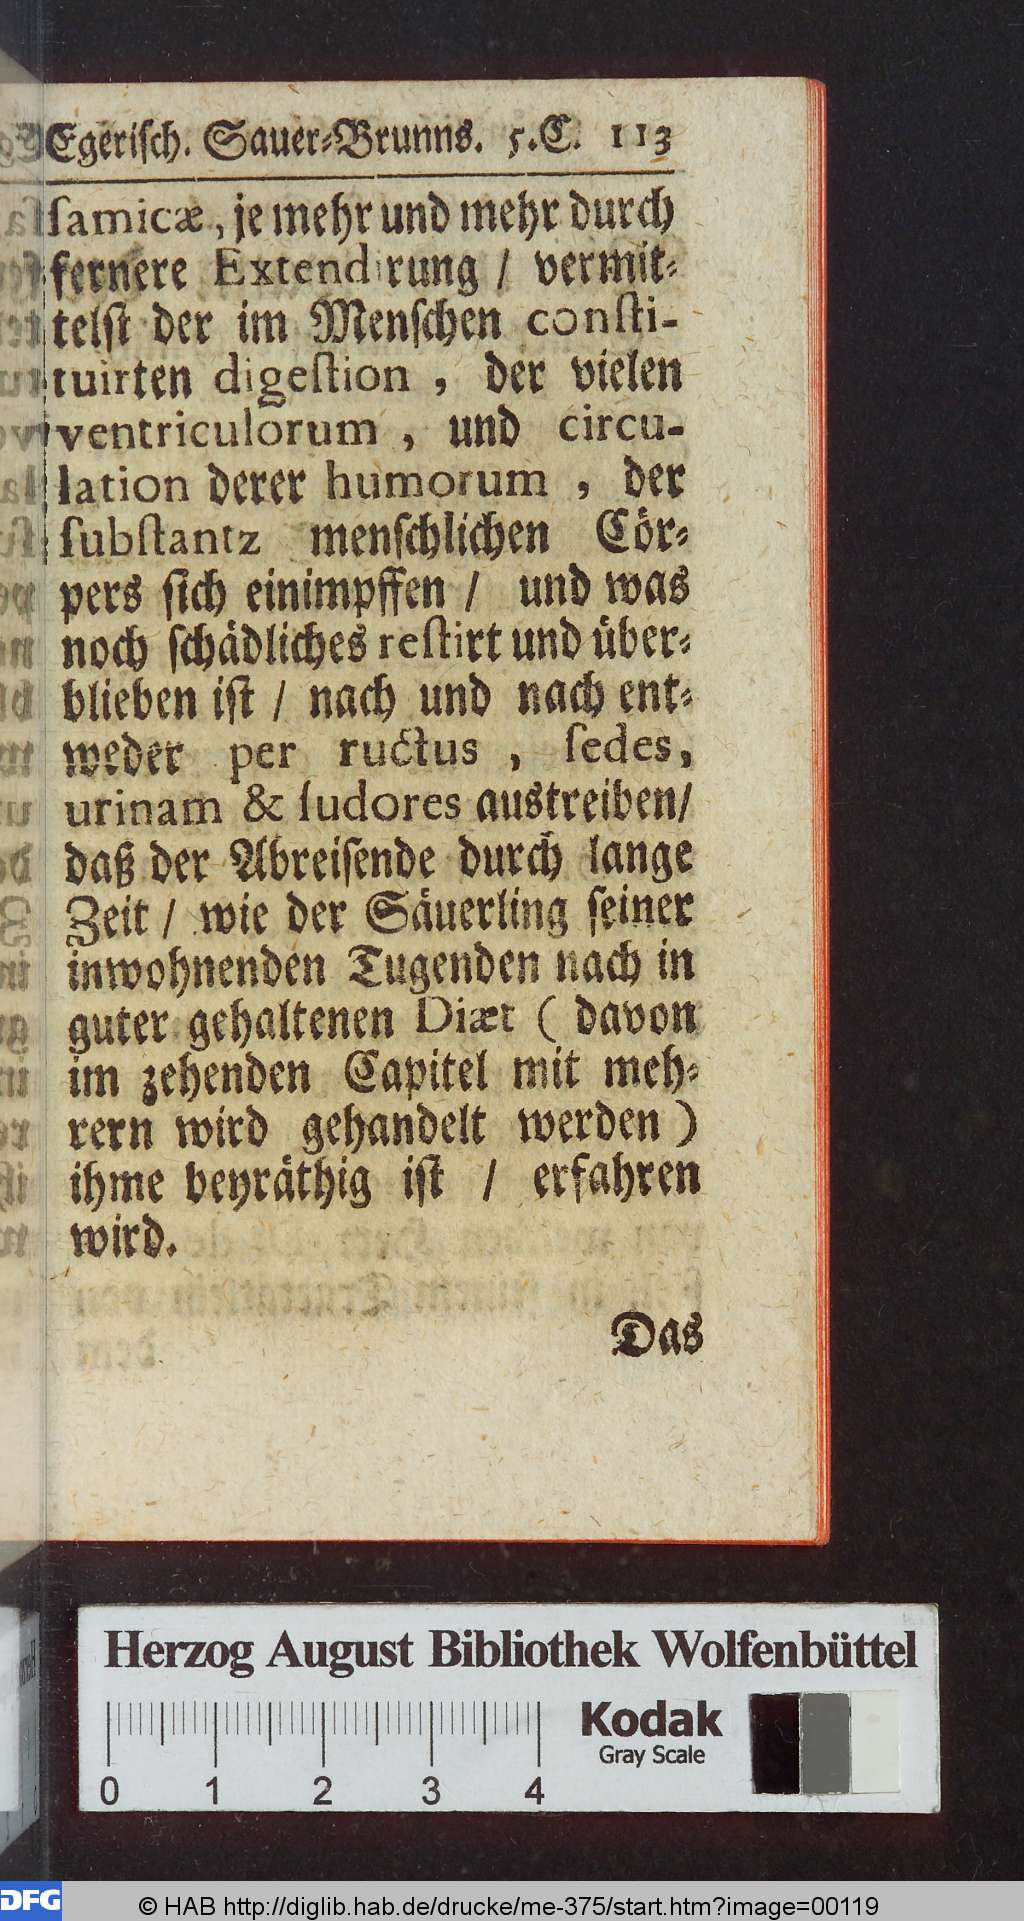 Egeriſch. Sauer-Brunns. 5.C. 113
ſamicæ, je mehr und mehr durch
fernere Extendirung / vermit-
telſt der im Menſchen conſti-
tuirten digeſtion, der vielen
ventriculorum, und circu-
lation derer humorum, der
ſubſtantz menſchlichen Cör-
pers ſich einimpffen / und was
noch ſchädliches reſtirt und über-
blieben iſt / nach und nach ent-
weder per ructus, ſedes,
urinam & ſudores austreiben/
daß der Abreiſende durch lange
Zeit / wie der Säuerling ſeiner
inwohnenden Tugenden nach in
guter gehaltenen Diæt ( davon
im zehenden Capitel mit meh-
rern wird gehandelt werden )
ihme beyräthig iſt / erfahren
wird.
Das
Herzog August Bibliothek Wolfenbüttel
Kodak
Gray Scale
0 1 2 3 4
DFG © HAB http://diglib.hab.de/drucke/me-375/start.htm?image=00119